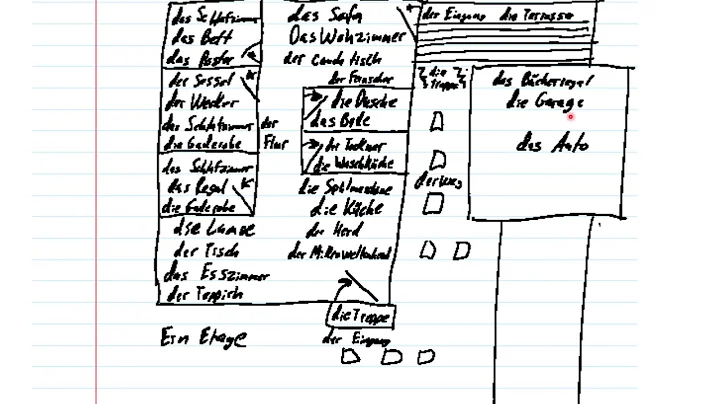 das Schlafzimmer
das Bett
das Poster
der Sessel
der Wecker
das Schlafzimmer
die Gaderobe
das Schlafzimmer
das Regal
die Gaderobe
die Lampe
der Tisch
das Esszimmer
der Teppich
der
Flur
das Sofa
Das Wohzimmer
der Couch tisch
der Fernseher
die Dusche
das Bade
der Trockner
die Waschküche
die Spülmaschine
die Küche
der Herd
die Treppe
der Eingang
Ein Etage
der Eingang die Terrasse
die
Treppe
der Weg
das Bücheregal
die Garage
das Auto